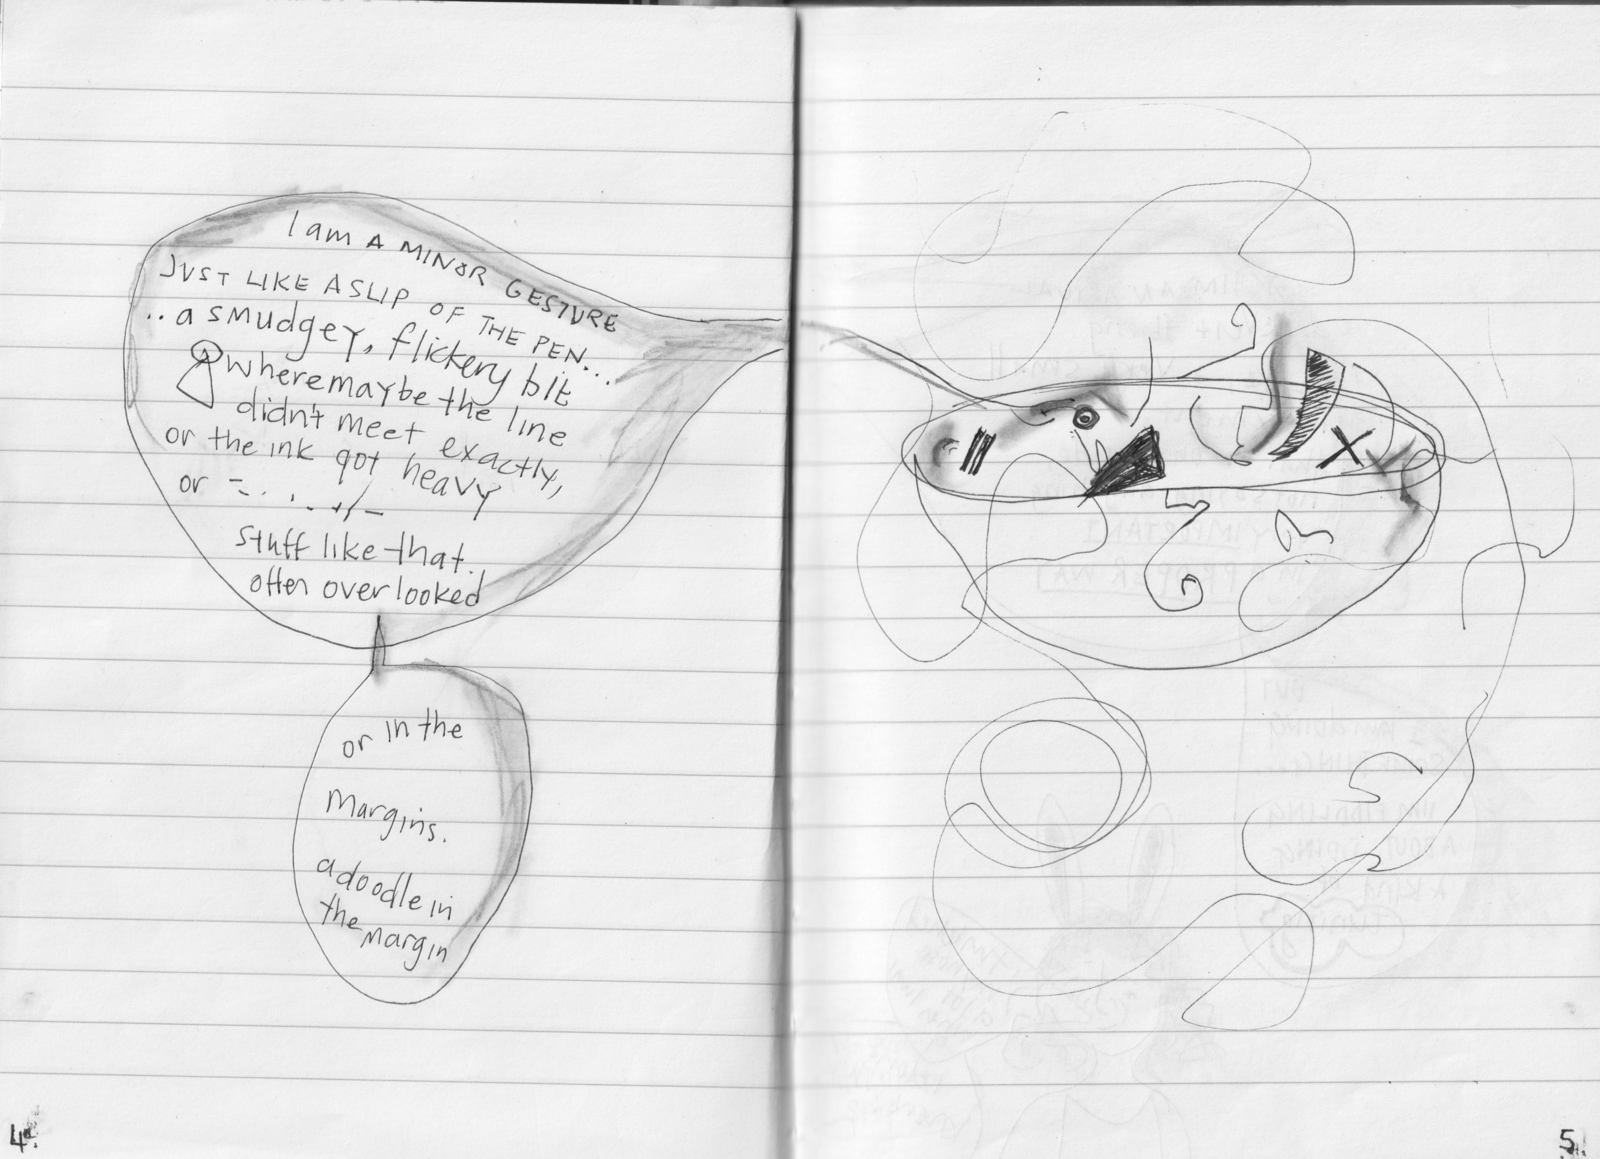 I am A MINOR GESTURE
JUST LIKE A SLIP OF THE PEN...
..a smudgey, flickery bit...
where maybe the line
didn't meet exactly,
or the ink got heavy
or
stuff like that.
often overlooked
or in the
margins.
a doodle in
the margin
4.
5.